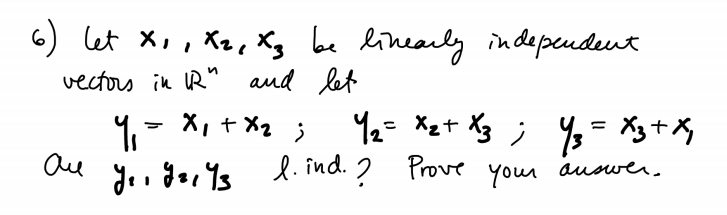 6) Let x₁, x₂, x₃ be linearly independent
vectors in ℝⁿ and let
y₁ = x₁ + x₂ ; y₂ = x₂ + x₃ ; y₃ = x₃ + x₁
Are y₁, y₂, y₃ l. ind. ? Prove your answer.